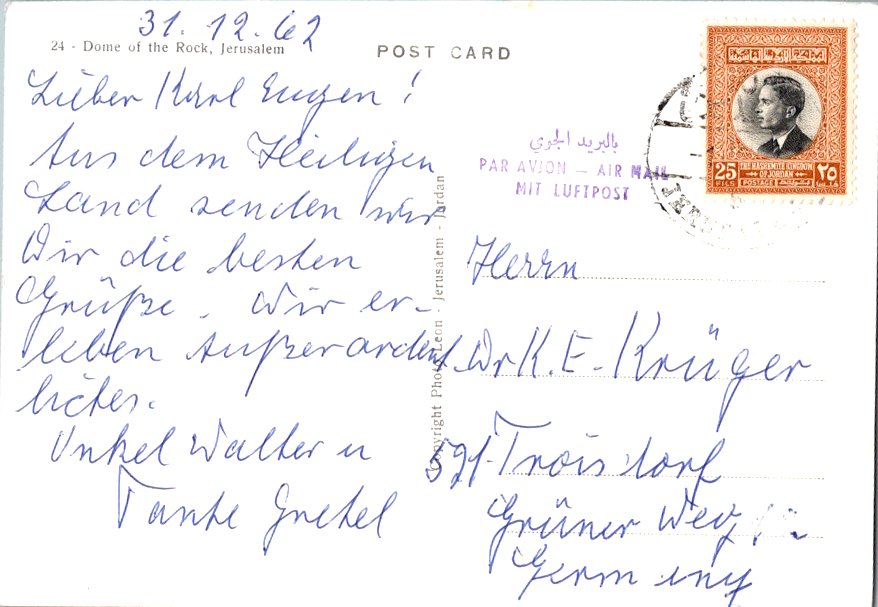 31.12.62
24 - Dome of the Rock, Jerusalem
POST CARD
Lieber Karl Eugen!
Aus dem Heiligen
Land senden wir
Dir die besten
Grüße. Wir er-
leben Außerordent
liches.
Onkel Walter u
Tante Gretel
Copyright Photo Leon - Jerusalem - Jordan
بالبريد الجوي
PAR AVION — AIR MAIL
MIT LUFTPOST
25
FILS
THE HASHEMITE KINGDOM
OF JORDAN
POSTAGE
٢٥
Herrn
Dr K. E. Krüger
521 Troisdorf
Grüner Weg
Germany